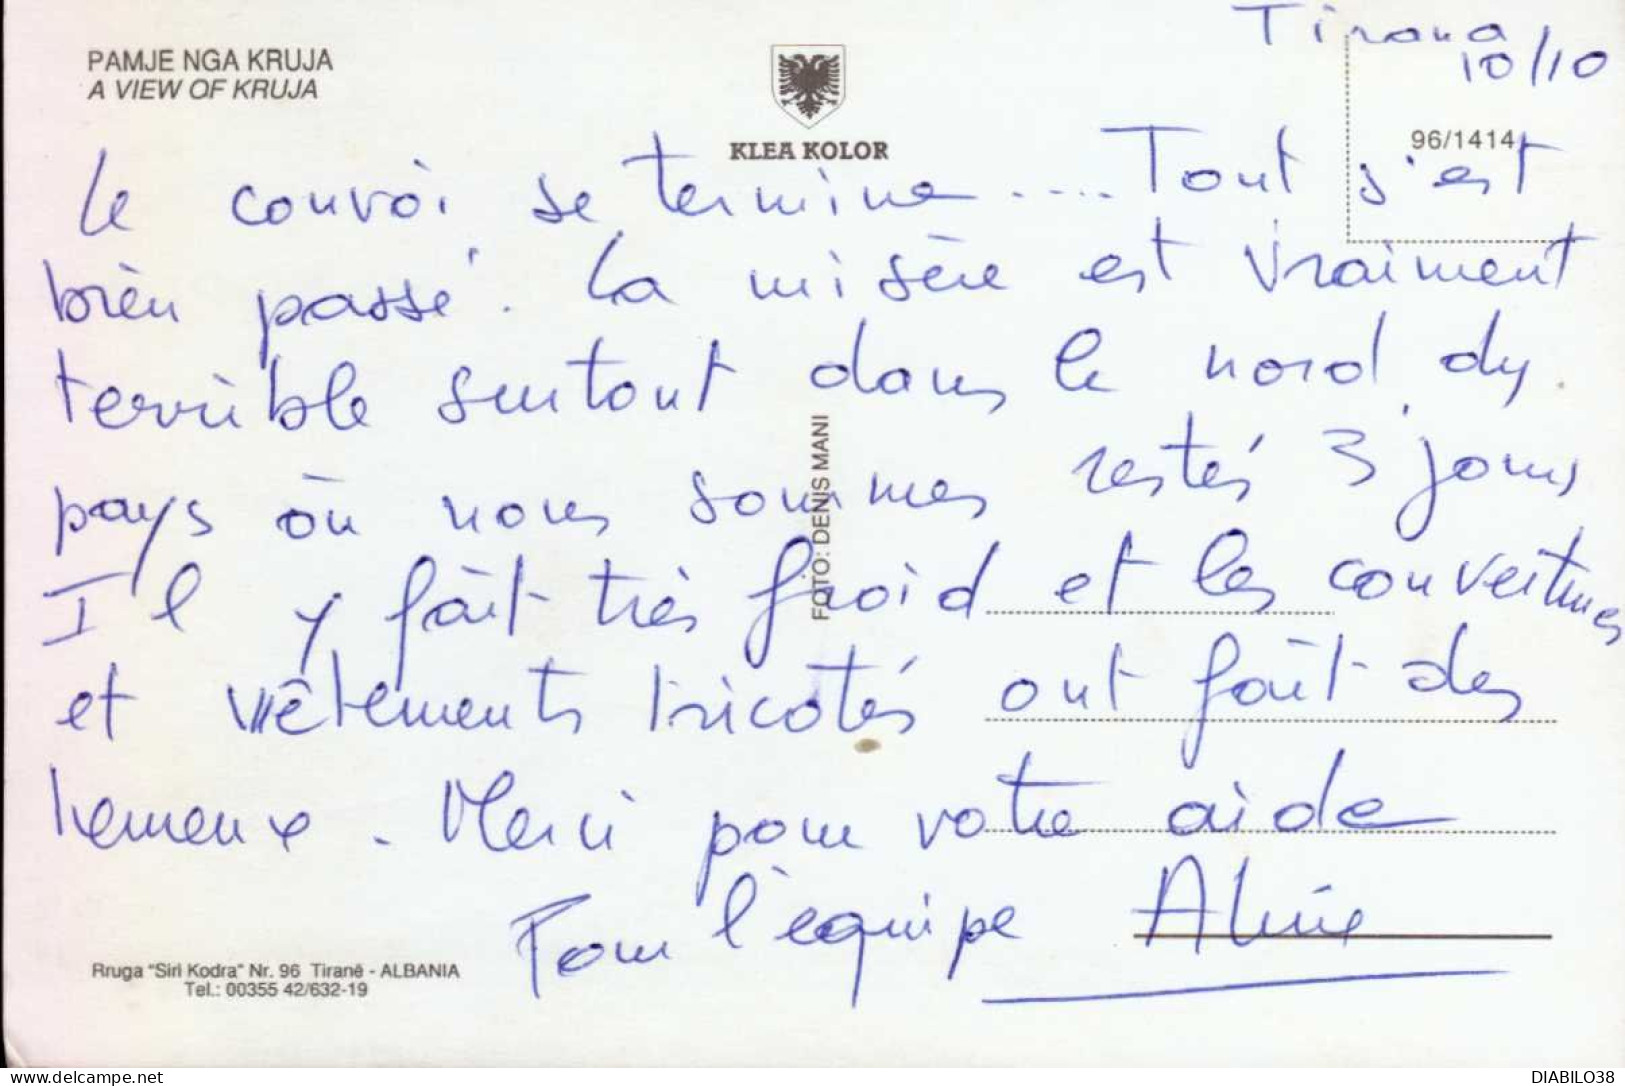 Tirana
10/10
PAMJE NGA KRUJA
A VIEW OF KRUJA
KLEA KOLOR
96/1414
Le convoi se termine .... Tout s'est
bien passé. La misère est vraiment
terrible surtout dans le nord du
pays où nous sommes restés 3 jours
Il y fait très froid et les couvertures
et vêtements tricotés ont fait des
heureux. Merci pour votre aide
Pour l'équipe Aline
FOTO: DENIS MANI
Rruga "Siri Kodra" Nr. 96 Tiranë - ALBANIA
Tel.: 00355 42/632-19
delcampe.net
DIABILO38